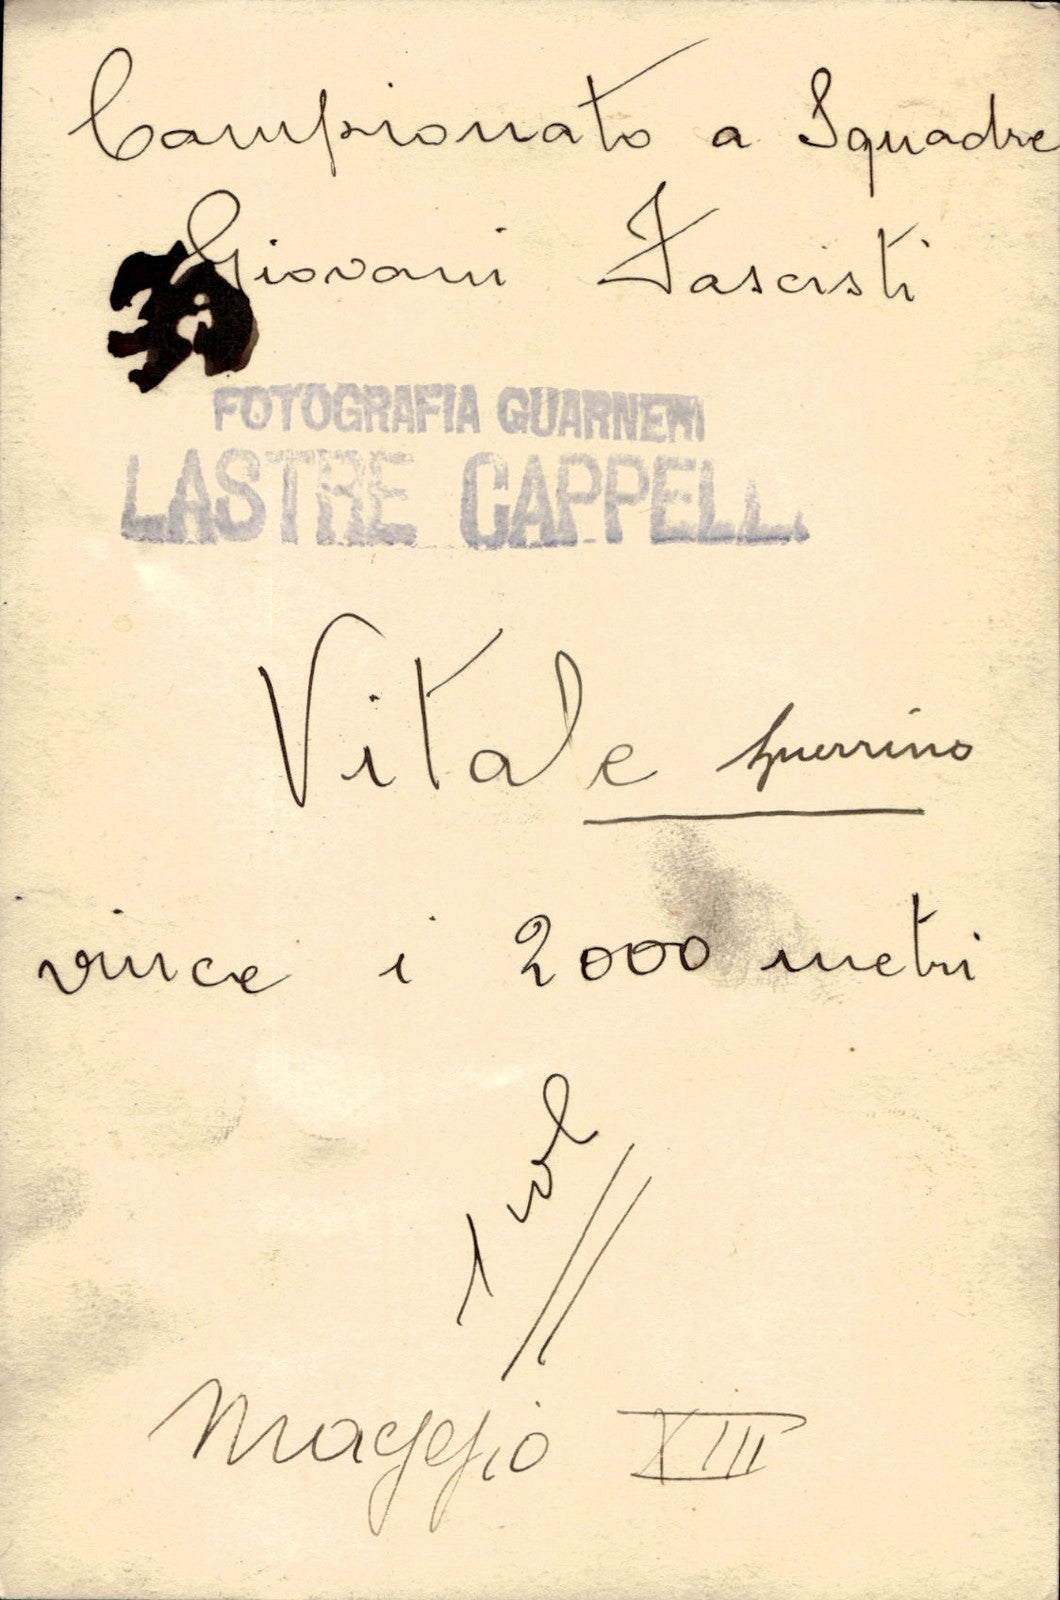 Campionato a Squadre
Giovani Fascisti
FOTOGRAFIA GUARNERI
LASTRE CAPPELLI
Vitale Guerrino
vince i 2000 metri
1 col
Maggio XIII